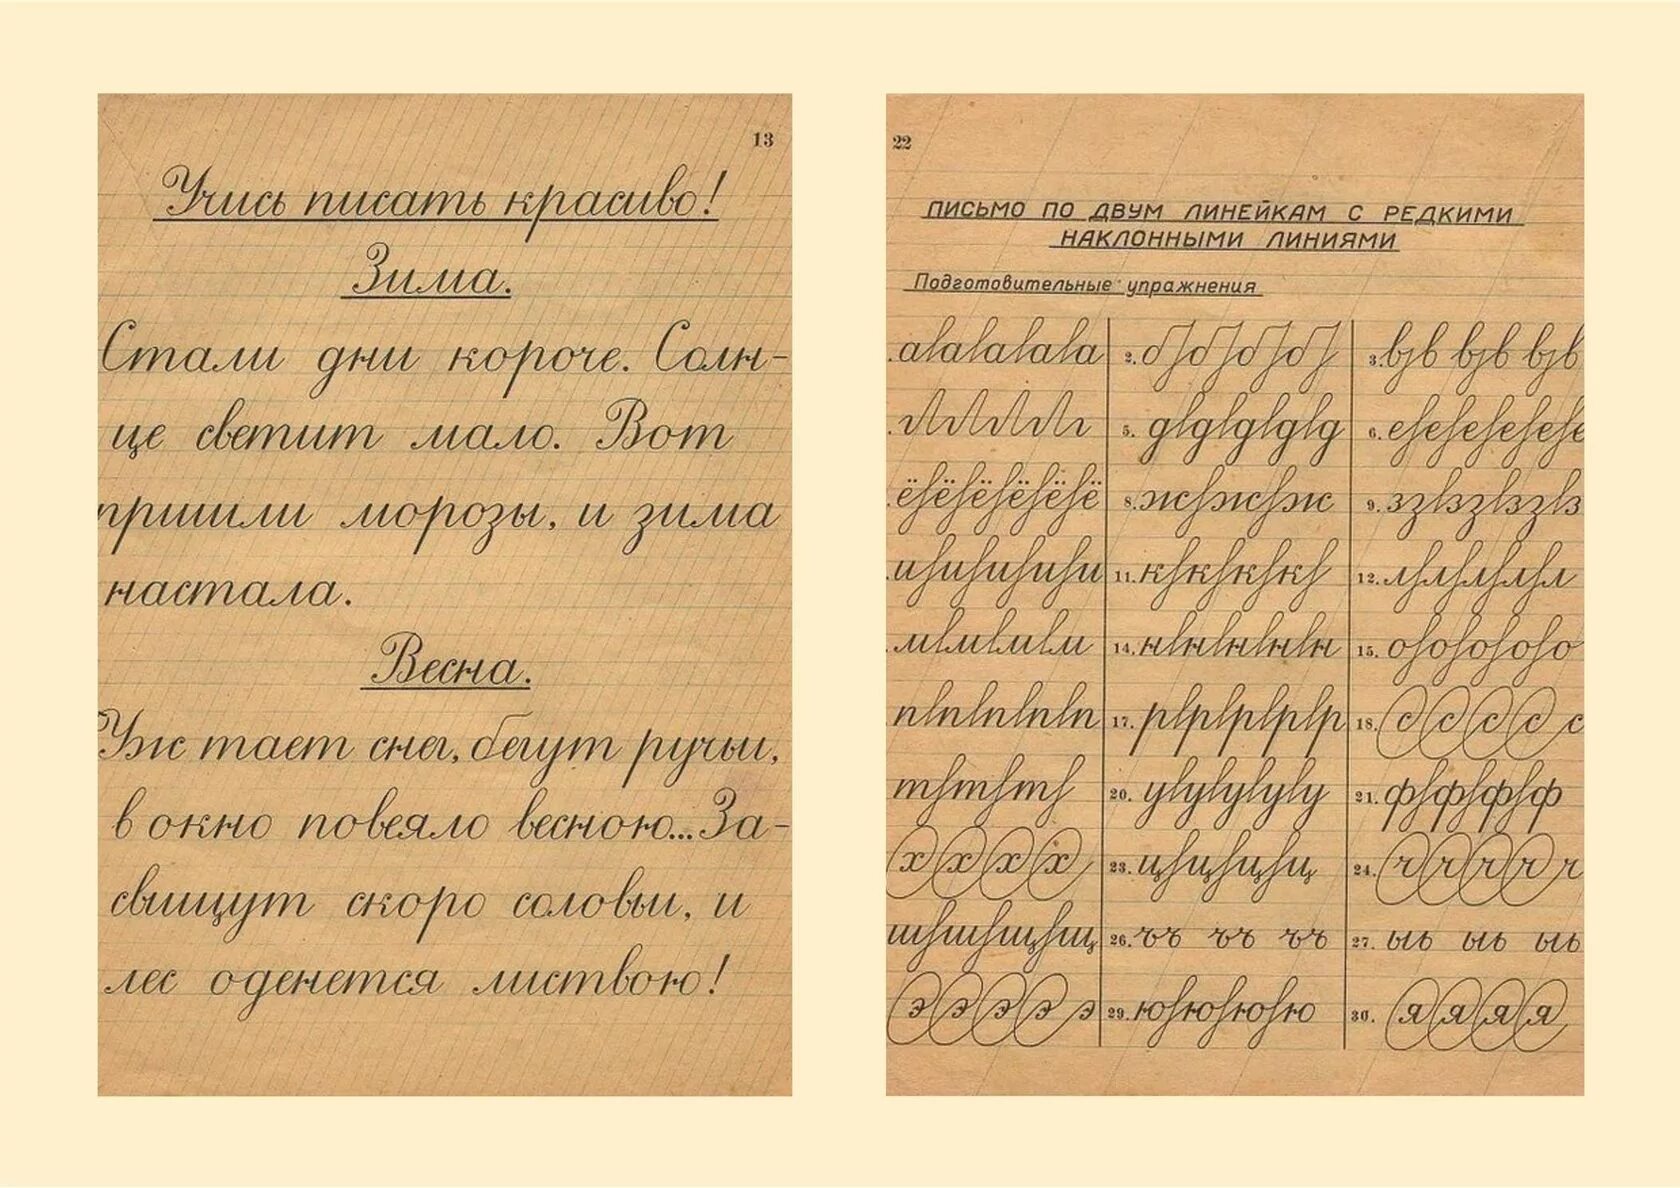 13
Учись писать красиво!
Зима.
Стали дни короче. Солн-
це светит мало. Вот
пришли морозы, и зима
настала.
Весна.
Уж тает снег, бегут ручьи,
в окно повеяло весною... За-
свищут скоро соловьи, и
лес оденется листвою!
22
ПИСЬМО ПО ДВУМ ЛИНЕЙКАМ С РЕДКИМИ
НАКЛОННЫМИ ЛИНИЯМИ
Подготовительные упражнения
а а а а а а 2. б б б б 3. в в в в в в
г г г г г 5. д д д д д д 6. е е е е е е
ё ё ё ё ё ё 8. ж ж ж 9. з з з з з з
и и и и и 11. к к к к 12. л л л л л
м м м м 14. н н н н н 15. о о о о о
п п п п п 17. р р р р р 18. с с с с с
т т т 20. у у у у у 21. ф ф ф ф
х х х х 23. ц ц ц ц 24. ч ч ч ч ч
ш ш щ щ 26. ъъ ъъ ъъ 27. ыь ыь ыь
э э э э э 29. ю ю ю ю 30. я я я я